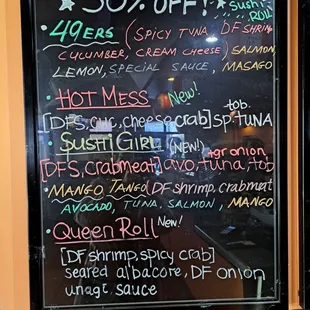 ★ 50% OFF! ★
Sushi
ROLL
• 49ERS (SPICY TUNA, DF SHRIMP
CUCUMBER, CREAM CHEESE) SALMON
LEMON, SPECIAL SAUCE, MASAGO
• HOT MESS New!
tob.
[DFS, cuc, cheese crab] sp. TUNA
• SUSHI GIRL (NEW!) +gr onion
[DFS, crabmeat] avo, tuna, tob
• MANGO TANGO (DF shrimp, crabmeat
AVOCADO, TUNA, SALMON, MANGO
• Queen Roll New!
[DF shrimp, spicy crab]
seared albacore, DF onion
unagi sauce